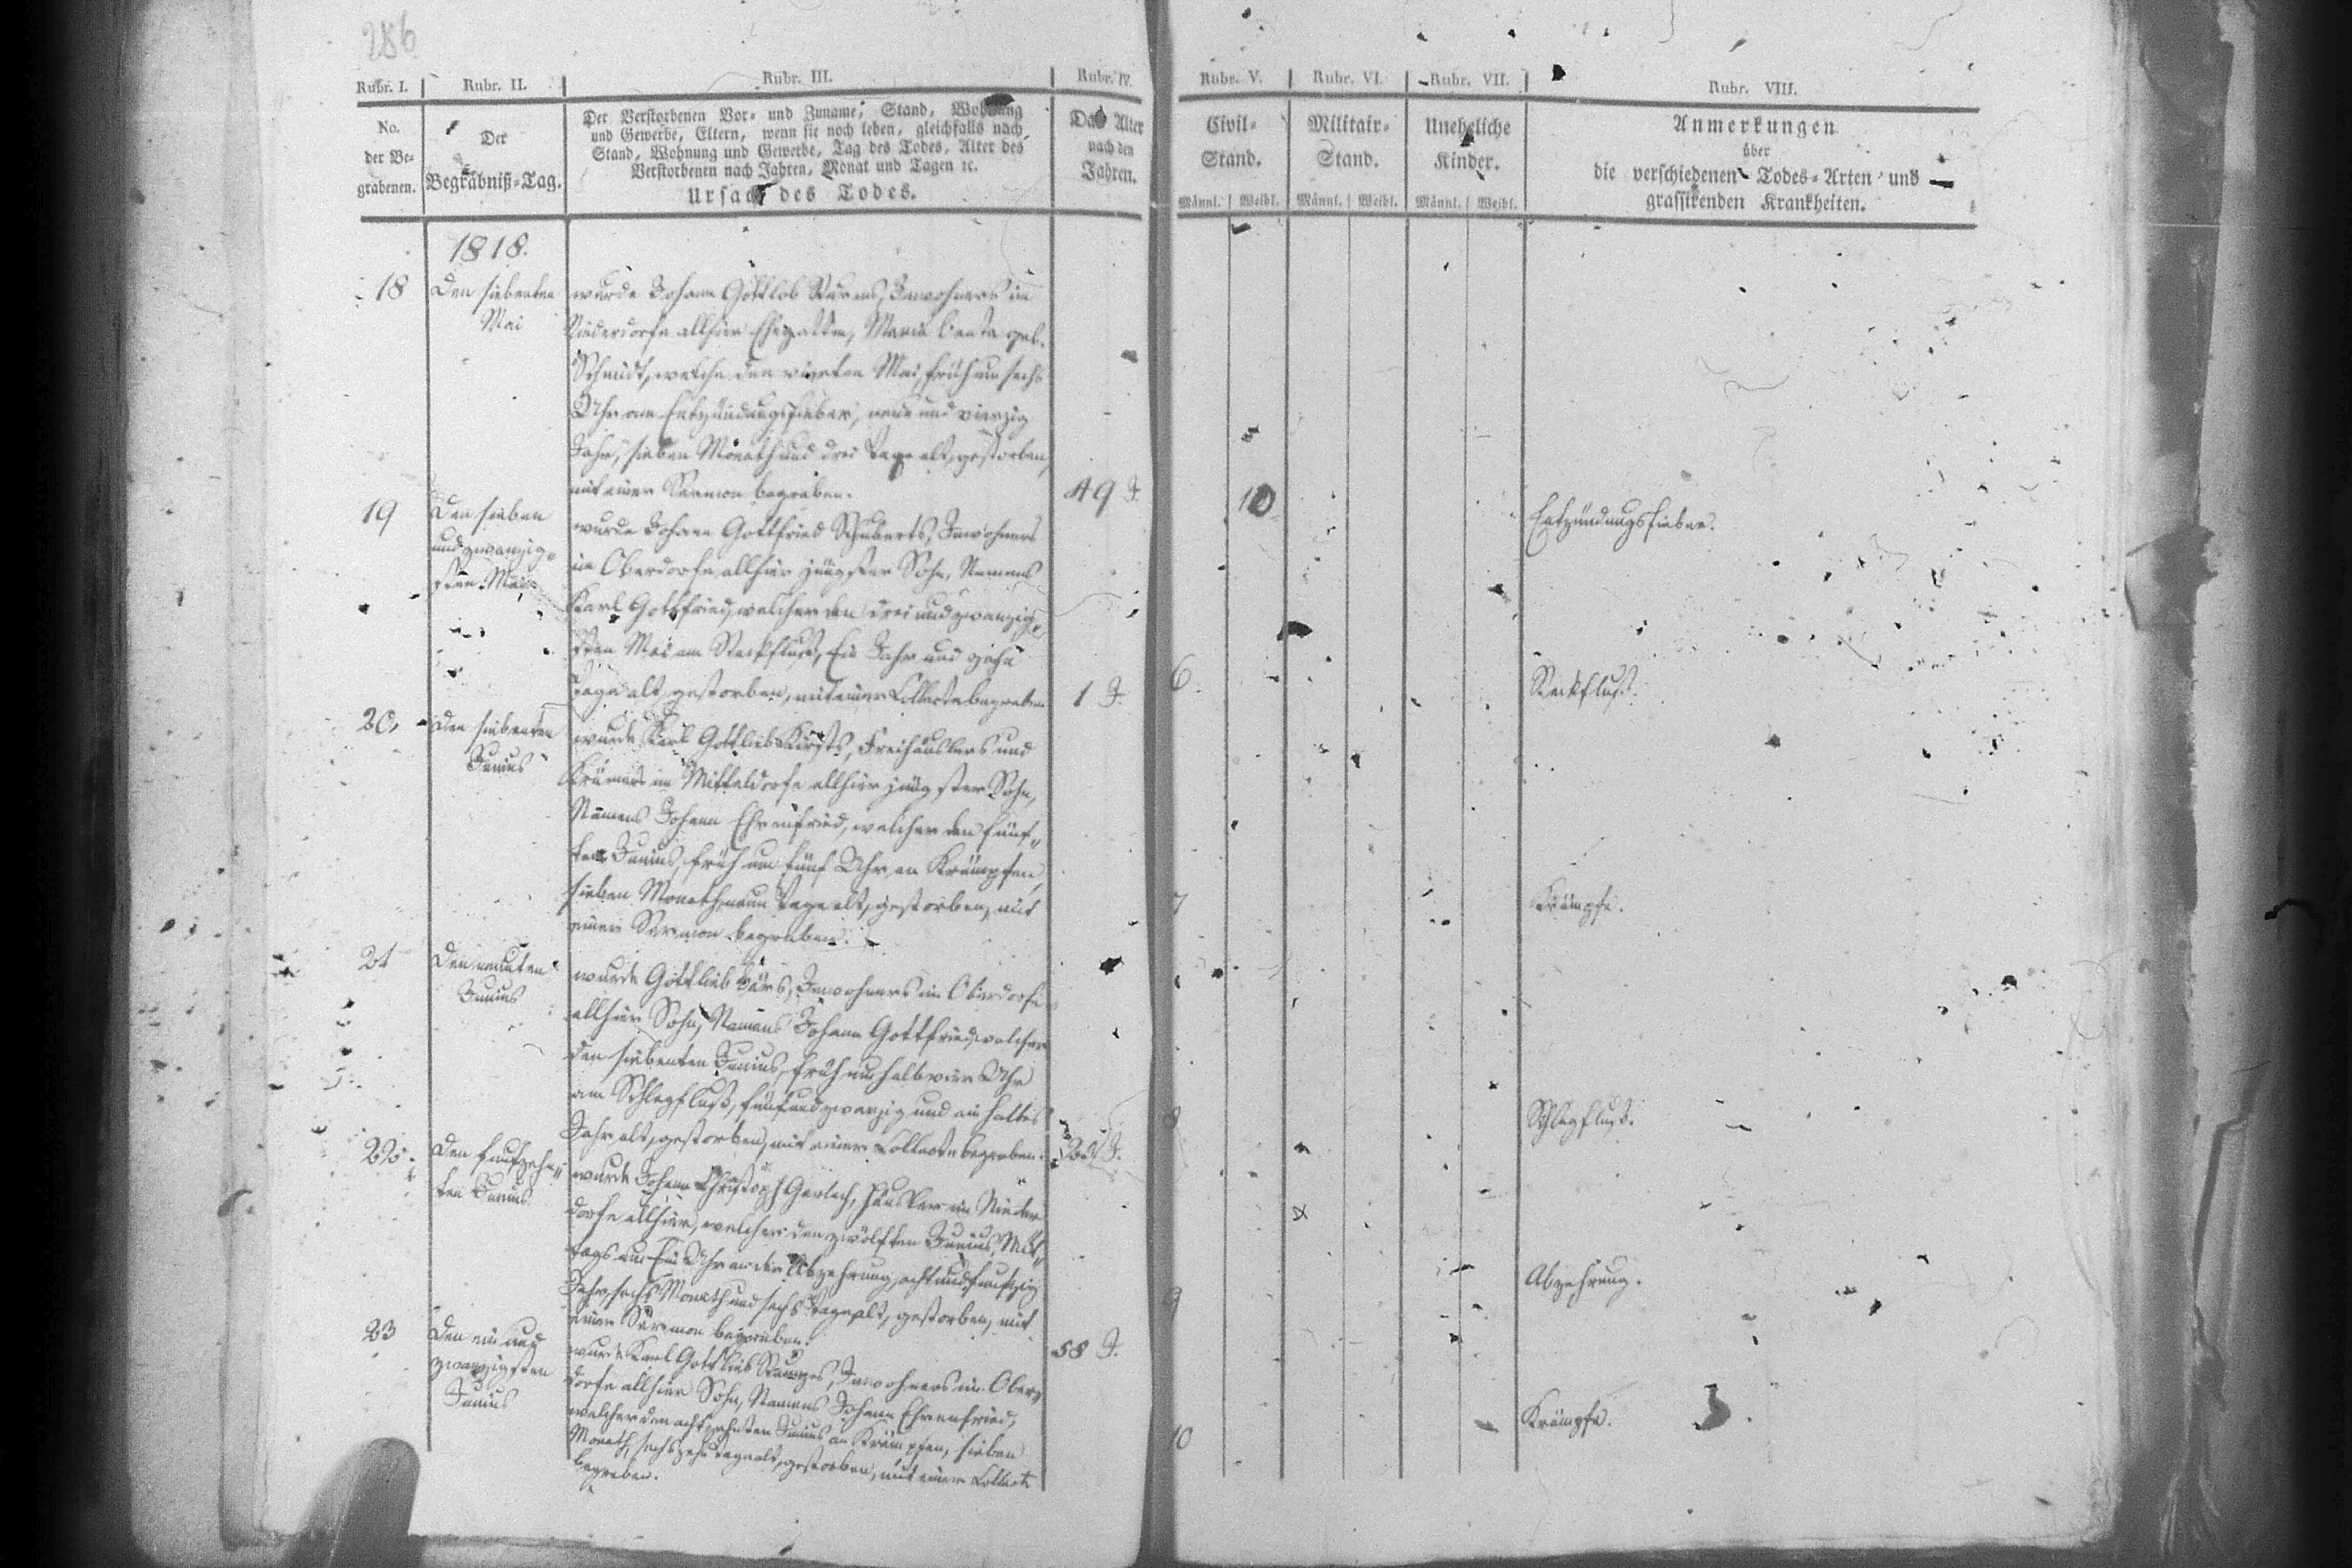 286
Rubr. I.
Rubr. II.
Rubr. III.
Rubr. IV.
Rubr. V.
Rubr. VI.
Rubr. VII.
Rubr. VIII.
No.
der Be-
grabenen.
Der
Begräbniß-Tag.
Der Verstorbenen Vor- und Zuname, Stand, Wohnung
und Gewerbe, Eltern, wenn sie noch leben, gleichfalls nach
Stand, Wohnung und Gewerbe, Tag des Todes, Alter des
Verstorbenen nach Jahren, Monat und Tagen ꝛc.
Ursach des Todes.
Das Alter
nach den
Jahren.
Civil-
Stand.
Männl. Weibl.
Militair-
Stand.
Männl. Weibl.
Uneheliche
Kinder.
Männl. Weibl.
Anmerkungen
über
die verschiedenen Todes-Arten und
grassirenden Krankheiten.
1818.
18
Den siebenten
Mai
wurde Johann Gottlob Inwohners im
Niederdorfe allhier Ehegattin, Maria Beata geb.
Schmidt, welche den vierten Mai, früh um sechs
Uhr am Entzündungsfieber, neun und vierzig
Jahr, sieben Monath und drei Tage alt, gestorben,
mit einer Sermon begraben.
49 J.
10
Entzündungsfieber.
19
Den sieben
und zwanzig-
sten Mai
wurde Johann Gottfried Schuberts, Inwohners
im Oberdorfe allhier jüngster Sohn, Namens
Karl Gottfried, welcher den drei und zwanzig-
sten Mai am Steckfluß, Ein Jahr und zehn
Tage alt, gestorben, mit einer Collecte begraben
1 J.
6
Steckfluß.
20.
Den siebenten
Junius
wurde Karl Gottlieb Freihäuslers und
Krämers im Mitteldorfe allhier jüngster Sohn,
Namens Johann Ehrenfried, welcher den fünf-
ten Junius, früh um fünf Uhr, an Krämpfen,
sieben Monath, neun Tage alt, gestorben, mit
einer Sermon begraben.
7
Krämpfe.
21
Den neunten
Junius
wurde Gottlieb Bärs, Inwohners im Oberdorfe
allhier Sohn, Namens Johann Gottfried, welcher
den siebenten Junius, früh um halb vier Uhr
am Schlagfluß, fünf und zwanzig und ein halbes
Jahr alt, gestorben, mit einer Collecte begraben.
8
Schlagfluß.
22.
Den funfzehn-
ten Junius
wurde Johann Christoph Gerlach, Häusler im Nieder-
dorfe allhier, welcher den zwölften Junius, Mit-
tags um Ein Uhr an der Abzehrung, acht und funfzig
Jahr, sechs Monath und sechs Tage alt, gestorben, mit
einer Sermon begraben.
58 J.
9
Abzehrung.
23
Den ein und
zwanzigsten
Junius
wurde Karl Gottlieb Inwohners im Ober-
dorfe allhier Sohn, Namens Johann Ehrenfried,
welcher den achtzehnten Junius an Krämpfen, sieben
Monath, sechszehn Tage alt, gestorben, mit einer Collecte
begraben.
10
Krämpfe.